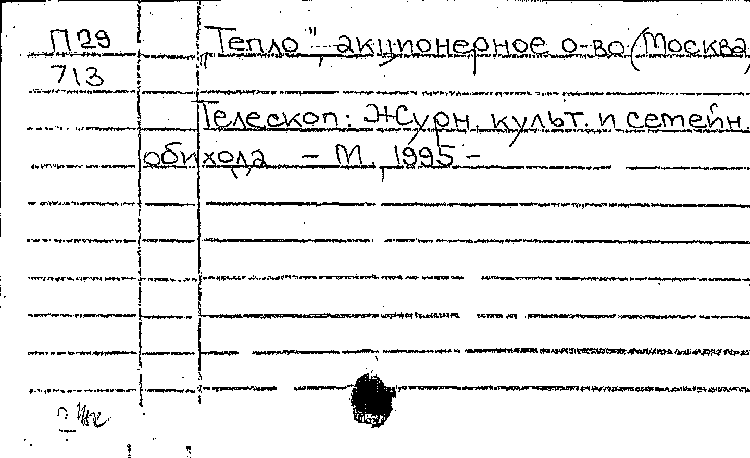 П29 „Тепло" акционерное о-во (Москва)
713
Телескоп: Журн. культ. и семейн.
обихода – М., 1995 –